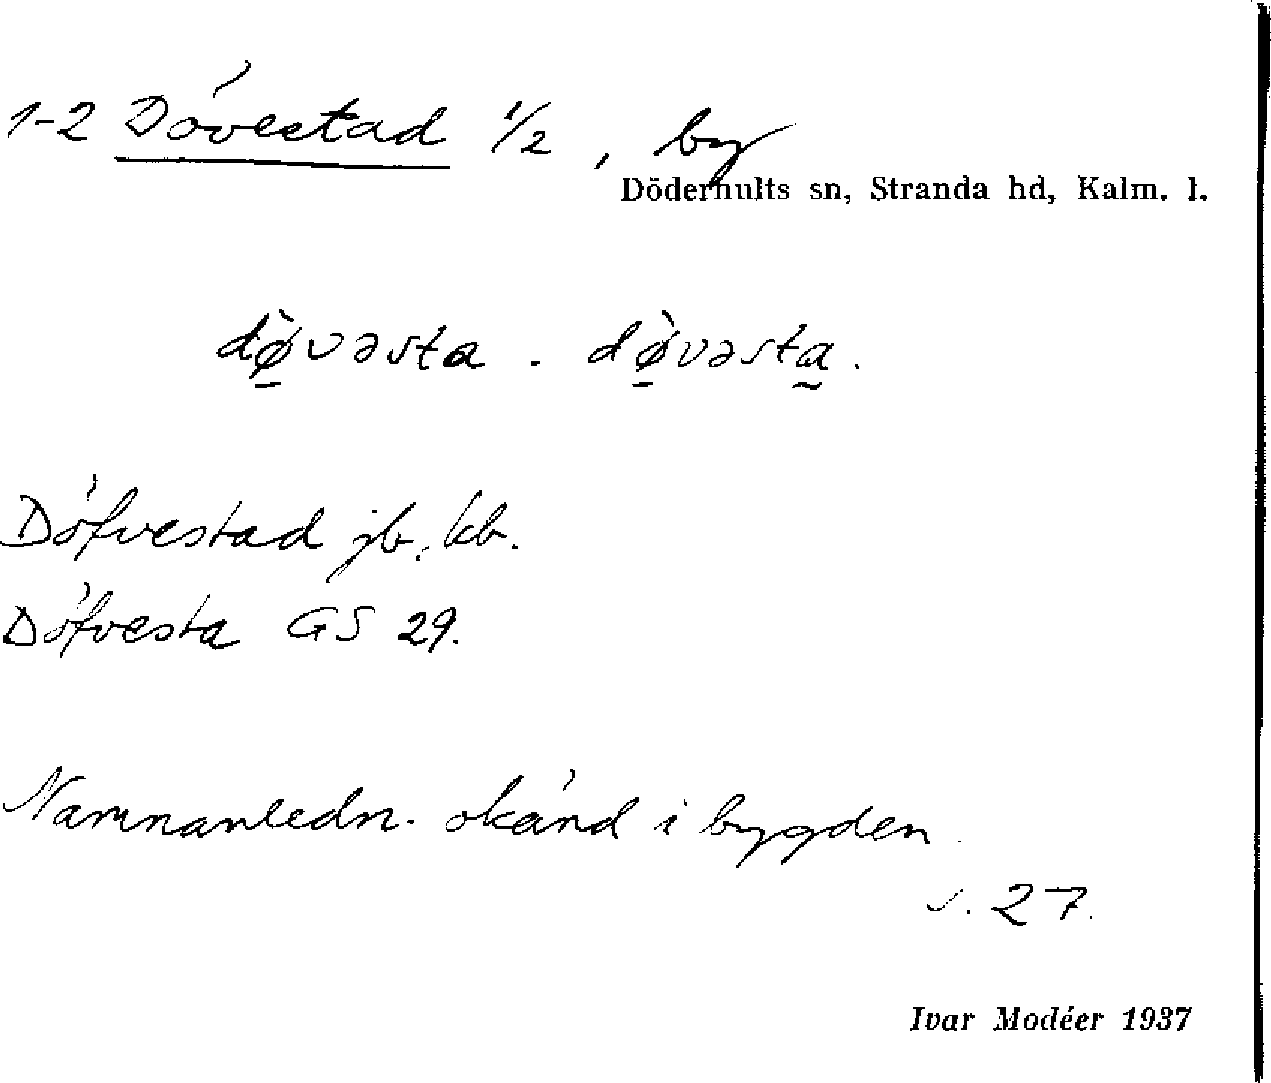 1-2 Dövestad 1/2, by
Dödernults sn, Stranda hd, Kalm. l.
dø̠̀vəsta . dø̠̀vəsta̰.
Döfvestad jb, kb.
Döfvesta GS 29.
Namnanledn. okänd i bygden.
s. 27.
Ivar Modéer 1937